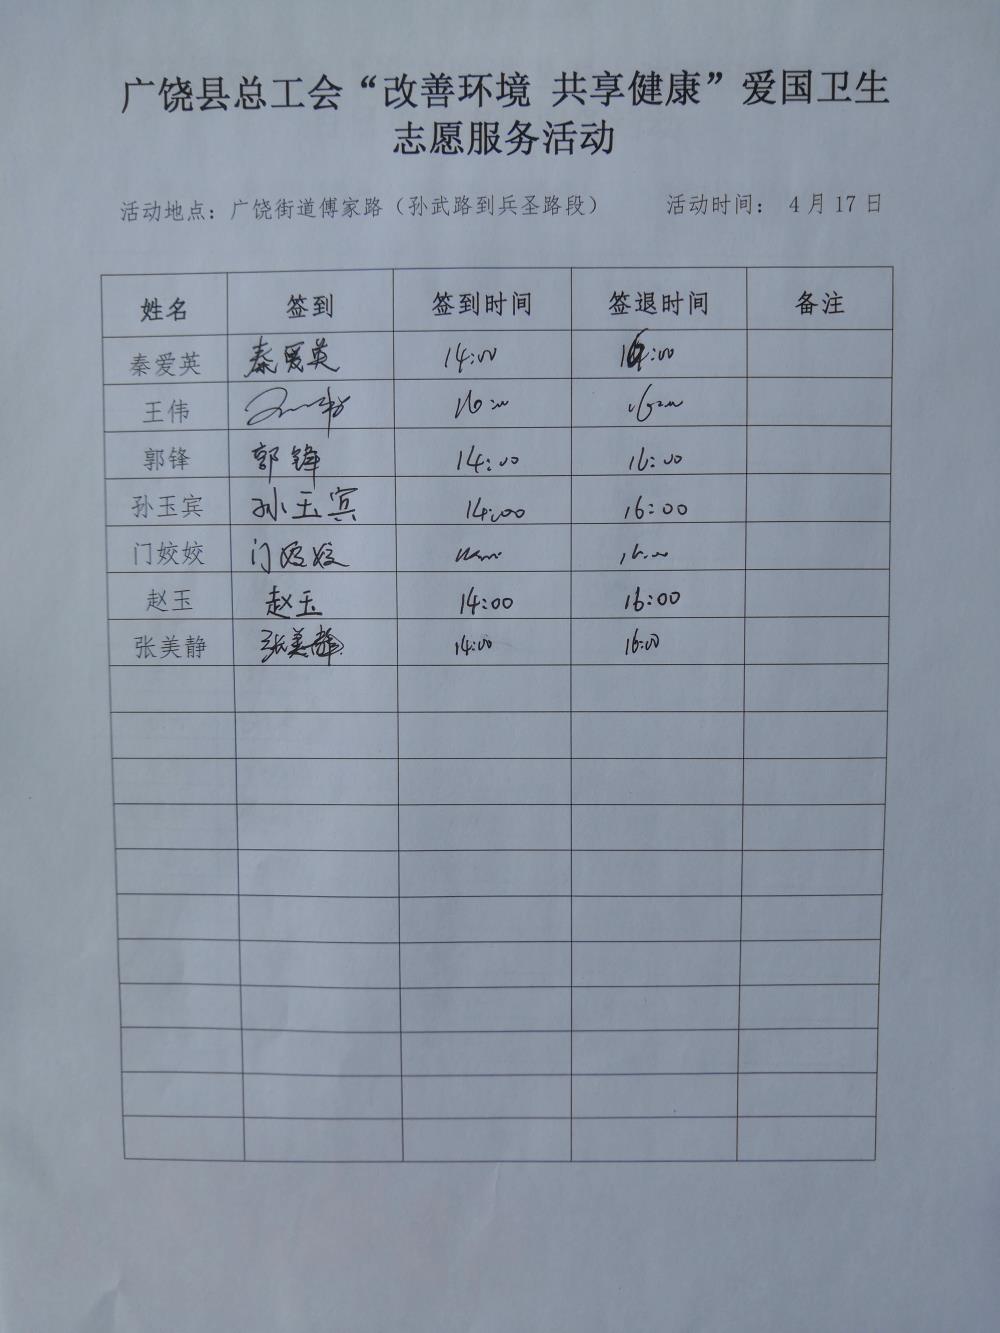 广饶县总工会“改善环境 共享健康”爱国卫生
志愿服务活动
活动地点：广饶街道傅家路（孙武路到兵圣路段） 活动时间： 4月17日
姓名 签到 签到时间 签退时间 备注
秦爱英 秦爱英 14:00 16:00
王伟 16:00
郭锋 郭锋 14:00 16:00
孙玉宾 孙玉宾 14:00 16:00
门姣姣 门姣姣
赵玉 赵玉 14:00 16:00
张美静 张美静 14:00 16:00